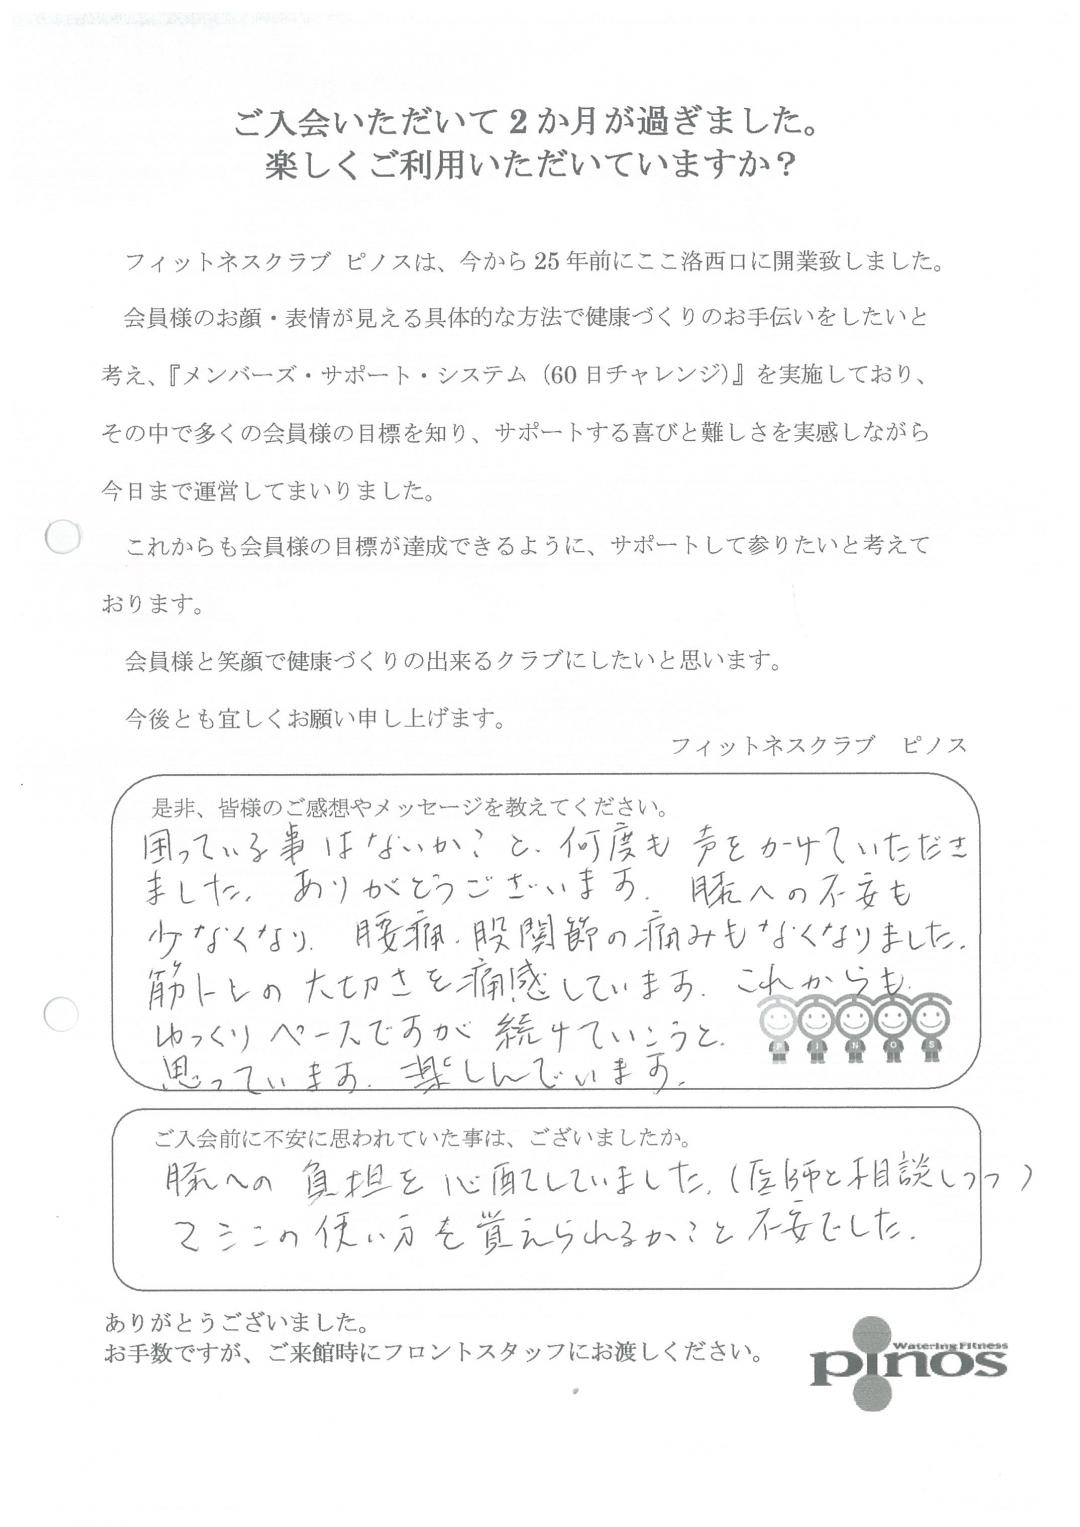 ご入会いただいて２か月が過ぎました。
楽しくご利用いただいていますか？
フィットネスクラブ ピノスは、今から 25 年前にここ洛西口に開業致しました。
会員様のお顔・表情が見える具体的な方法で健康づくりのお手伝いをしたいと
考え、『メンバーズ・サポート・システム（60 日チャレンジ）』を実施しており、
その中で多くの会員様の目標を知り、サポートする喜びと難しさを実感しながら
今日まで運営してまいりました。
これからも会員様の目標が達成できるように、サポートして参りたいと考えて
おります。
会員様と笑顔で健康づくりの出来るクラブにしたいと思います。
今後とも宜しくお願い申し上げます。
フィットネスクラブ　ピノス
是非、皆様のご感想やメッセージを教えてください。
困っている事はないか？と、何度も声をかけていただき
ました。ありがとうございます。膝への不安も
少なくなり、腰痛、股関節の痛みもなくなりました。
筋トレの大切さを痛感しています。これからも
ゆっくりペースですが続けていこうと、
思っています。楽しんでいます。
PINOS
ご入会前に不安に思われていた事は、ございましたか。
膝への負担を心配していました。（医師と相談しつつ）
マシンの使い方を覚えられるか？と不安でした。
ありがとうございました。
お手数ですが、ご来館時にフロントスタッフにお渡しください。
Watering Fitness
pinos